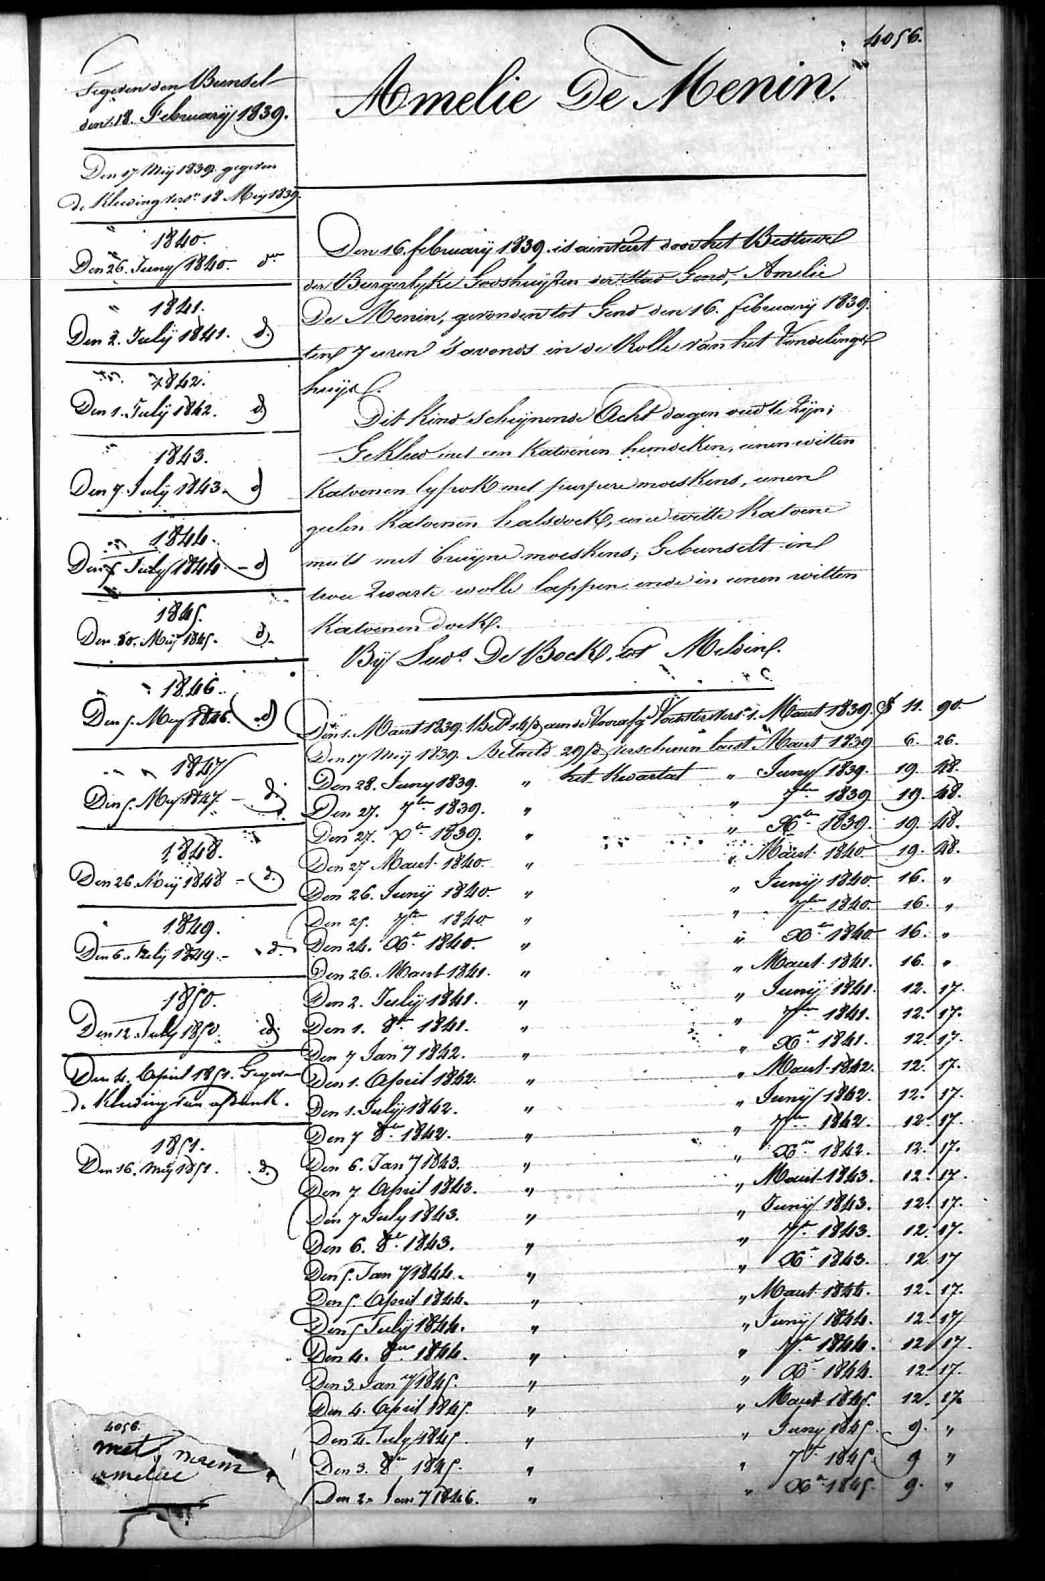 4056.
Amelie De Menin.
Gegeven den Bunsel
den 18. February 1839.
Den 17 Meij 1839 gegeven
de Kleeding vers.n 18 Meij 1839
1840.
Den 26. Juny 1840. do
1841.
Den 2. Julij 1841. d.
1842.
Den 1. Julij 1842. d
1843.
Den 7. Julij 1843. d
1844.
Den 5 July 1844. - d
1845.
Den 30. Meij 1845. d.
1846.
Den 5. Mey 1846. d
1847
Den 5. Mey 1847. - d.
1848.
Den 26. Meij 1848 - d.
1849.
Den 6. July 1849. - d.
1850.
Den 12. July 1850. d.
Den 4. April 1851. Gegeven
de Kleeding van
1851.
Den 16. Mey 1851. d.
Den 16. february 1839. is door het Bestuur
der Burgerlyke Godshuyzen der stad Gend, Amelie
De Menin, gevonden tot Gend den 16. february 1839.
ten 7 uren 's avonds in de Rolle van het Vondelings
huys.
Dit Kind scheynende Acht dagen oud te zyn;
Gekleed met een Katoenen hemdeken, eenen witten
Katoenen lyfrok met purpere moeskens, eenen
geelen Katoenen halsdoek, eene witte Katoene
muts met bruyne moeskens; Gebunselt in
twee zwarte wolle lappen ende in eenen witten
Katoenen doek.
Bij Lud.s De Bock, tot Melsen.
Den 1. Maart 1839. aen de Voorafg. Voedsters 1. Maart 1839. f 11. 90.
Den 17 Meij 1839. betaeld verschenen laest Maart 1839 6. 26.
Den 28. Juny 1839. " het Kwartael " Juny 1839. 19. 48.
Den 27. 7ber 1839. " " 7ber 1839 19. 48.
Den 27. Xber 1839. " " Xber 1839. 19. 48.
Den 27 Maart 1840. " " Maart 1840 19. 48.
Den 26. Junij 1840. " " Junij 1840. 16. "
Den 25. 7ber 1840 " " 7ber 1840 16. "
Den 24. Xber 1840. " " Xber 1840 16. "
Den 26. Maart 1841. " " Maart 1841. 16. "
Den 2. Julij 1841. " " Junij 1841. 12. 17.
Den 1. 8ber 1841. " " 7ber 1841. 12. 17.
Den 7 Jany 1842. " " Xber 1841. 12. 17.
Den 1. April 1842. " " Maart 1842. 12. 17.
Den 1. Julij 1842. " " Junij 1842. 12. 17.
Den 7 8ber 1842. " " 7ber 1842. 12. 17.
Den 6. Jany 1843. " " Xber 1842. 12. 17.
Den 7 April 1843. " " Maart 1843. 12. 17.
Den 7 July 1843. " " Junij 1843. 12. 17.
Den 6. 8ber 1843. " " 7ber 1843. 12. 17.
Den 5. Jany 1844. " " Xber 1843. 12 17
Den 5. April 1844. " " Maart 1844. 12. 17.
Den 5 Julij 1844. " " Junij 1844. 12. 17
Den 4. 8ber 1844. " " 7ber 1844. 12. 17.
Den 3. Jany 1845. " " Xber 1844. 12. 17.
Den 4. April 1845. " " Maart 1845. 12. 17.
Den 4. July 1845. " " Juny 1845. 9. "
Den 3. 8ber 1845. " " 7ber 1845. 9 "
Den 2. Jany 1846. " " Xber 1845. 9. "
4056.
amelie